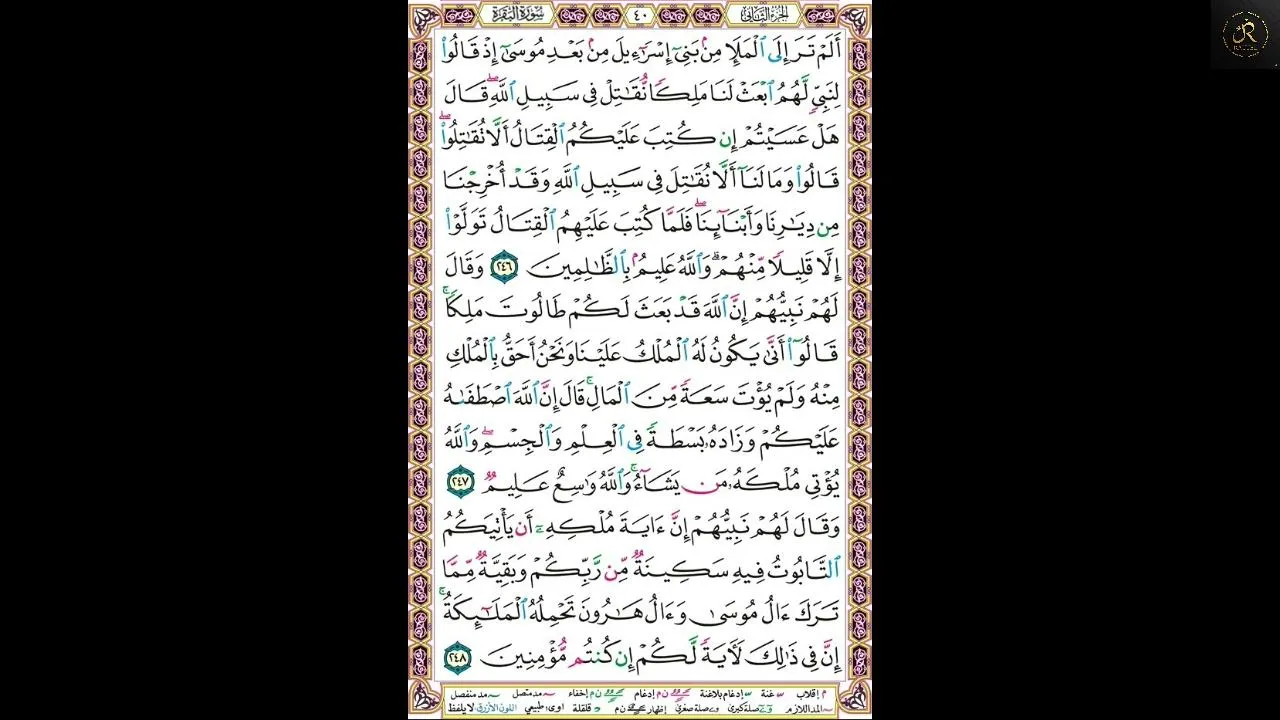 الجزء الثاني ٤٠ سورة البقرة
أَلَمْ تَرَ إِلَى ٱلْمَلَإِ مِنۢ بَنِىٓ إِسْرَٰٓءِيلَ مِنۢ بَعْدِ مُوسَىٰٓ إِذْ قَالُوا۟
لِنَبِىٍّ لَّهُمُ ٱبْعَثْ لَنَا مَلِكًا نُّقَٰتِلْ فِى سَبِيلِ ٱللَّهِ ۖ قَالَ
هَلْ عَسَيْتُمْ إِن كُتِبَ عَلَيْكُمُ ٱلْقِتَالُ أَلَّا تُقَٰتِلُوا۟ ۖ
قَالُوا۟ وَمَا لَنَآ أَلَّا نُقَٰتِلَ فِى سَبِيلِ ٱللَّهِ وَقَدْ أُخْرِجْنَا
مِن دِيَٰرِنَا وَأَبْنَآئِنَا ۖ فَلَمَّا كُتِبَ عَلَيْهِمُ ٱلْقِتَالُ تَوَلَّوْا۟
إِلَّا قَلِيلًا مِّنْهُمْ ۗ وَٱللَّهُ عَلِيمٌۢ بِٱلظَّٰلِمِينَ ٢٤٦ وَقَالَ
لَهُمْ نَبِيُّهُمْ إِنَّ ٱللَّهَ قَدْ بَعَثَ لَكُمْ طَالُوتَ مَلِكًا ۚ
قَالُوٓا۟ أَنَّىٰ يَكُونُ لَهُ ٱلْمُلْكُ عَلَيْنَا وَنَحْنُ أَحَقُّ بِٱلْمُلْكِ
مِنْهُ وَلَمْ يُؤْتَ سَعَةً مِّنَ ٱلْمَالِ ۚ قَالَ إِنَّ ٱللَّهَ ٱصْطَفَىٰهُ
عَلَيْكُمْ وَزَادَهُۥ بَسْطَةً فِى ٱلْعِلْمِ وَٱلْجِسْمِ ۖ وَٱللَّهُ
يُؤْتِى مُلْكَهُۥ مَن يَشَآءُ ۚ وَٱللَّهُ وَٰسِعٌ عَلِيمٌ ٢٤٧
وَقَالَ لَهُمْ نَبِيُّهُمْ إِنَّ ءَايَةَ مُلْكِهِۦٓ أَن يَأْتِيَكُمُ
ٱلتَّابُوتُ فِيهِ سَكِينَةٌ مِّن رَّبِّكُمْ وَبَقِيَّةٌ مِّمَّا
تَرَكَ ءَالُ مُوسَىٰ وَءَالُ هَٰرُونَ تَحْمِلُهُ ٱلْمَلَٰٓئِكَةُ ۚ
إِنَّ فِى ذَٰلِكَ لَءَايَةً لَّكُمْ إِن كُنتُم مُّؤْمِنِينَ ٢٤٨
م إقلاب غنة إدغام بلاغنة ن م إدغام ن م إخفاء مد متصل مد منفصل
المد اللازم صلة كبرى صلة صغرى إظهار ن م قلقلة اوى طبيعي اللون الأزرق لا يلفظ